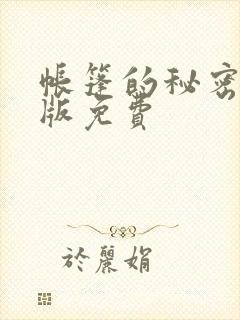 帳篷的秘密
版免費
於麗娟